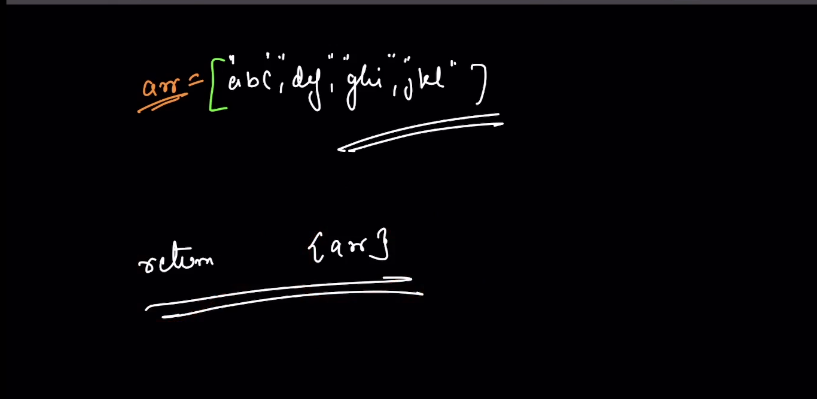 arr = ["abc", "def", "ghi", "jkl"]
return {arr}